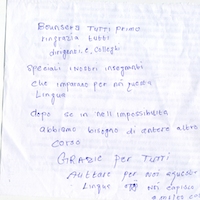 Bounsera Tutti primo
ringrazia tutti
dirigenti, e, colleghi
speciali i nostri insegnanti
che imparano per noi questa
Lingua
dopo se in nell impossibilità
abbiamo bisogno di entere altro
corso
GRAZIE per TUTTI
Auttare per noi queste
Lingue noi capisco